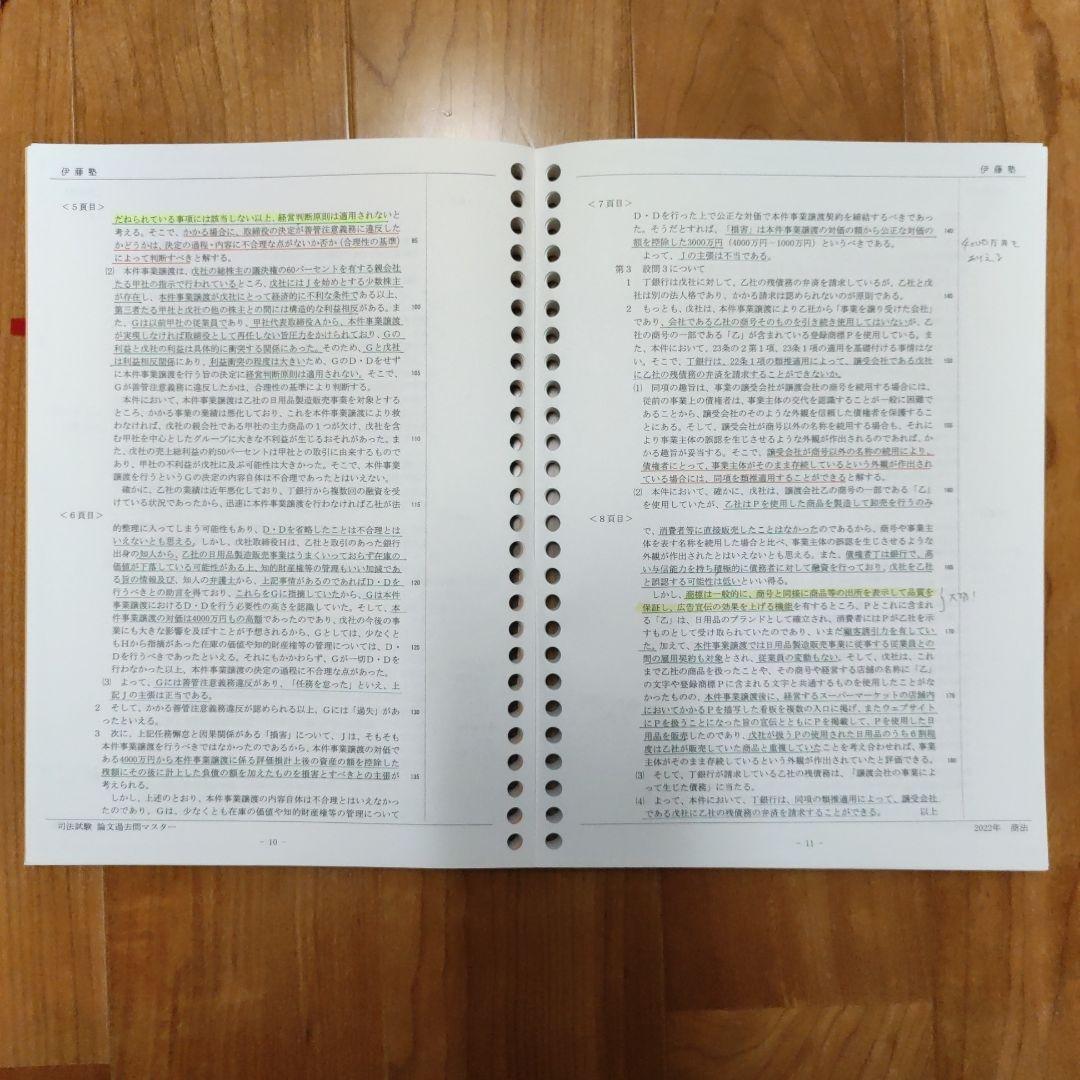 伊藤塾
＜5頁目＞
だねられている事項には該当しない以上、経営判断原則は適用されないと
考える。そこで、かかる場合に、取締役の決定が善管注意義務に違反した
かどうかは、決定の過程・内容に不合理な点がないか否か(合理性の基準) 95
によって判断すべきと解する。
⑵ 本件事業譲渡は、戊社の総株主の議決権の60パーセントを有する親会社
たる甲社の指示で行われているところ、戊社にはJを始めとする少数株主
が存在し、本件事業譲渡が戊社にとって経済的に不利な条件である以上、
第三者たる甲社と戊社の他の株主との間には構造的な利益相反がある。ま 100
た、Gは以前甲社の従業員であり、甲社代表取締役Aから、本件事業譲渡
が実現しなければ取締役として再任しない旨圧力をかけられており、Gの
利益と戊社の利益は具体的に衝突する関係にあった。そのため、Gと戊社
は利益相反関係にあり、利益衝突の程度は大きいため、GのD・Dをせず
に本件事業譲渡を行う旨の決定に経営判断原則は適用されない。そこで、 105
Gが善管注意義務に違反したかは、合理性の基準により判断する。
本件において、本件事業譲渡は乙社の日用品製造販売事業を対象とする
ところ、かかる事業の業績は悪化しており、これを本件事業譲渡により救
わなければ、戊社の親会社である甲社の主力商品の1つが欠け、戊社を含
む甲社を中心としたグループに大きな不利益が生じるおそれがあった。ま 110
た、戊社の売上総利益の約50パーセントは甲社との取引に由来するもので
あり、甲社の不利益が戊社に及ぶ可能性は大きかった。そこで、本件事業
譲渡を行うというGの決定の内容自体は不合理であったとはいえない。
確かに、乙社の業績は近年悪化しており、丁銀行から複数回の融資を受
けている状況であったから、迅速に本件事業譲渡を行わなければ乙社が法 115
＜6頁目＞
的整理に入ってしまう可能性もあり、D・Dを省略したことは不合理とは
いえないとも思える。しかし、戊社取締役Hは、乙社と取引のあった銀行
出身の知人から、乙社の日用品製造販売事業はうまくいっておらず在庫の
価値が下落している可能性がある上、知的財産権等の管理もいい加減であ
る旨の情報及び、知人の弁護士から、上記事情があるのであればD・Dを 120
行うべきとの助言を得ており、これらをGに指摘していたから、Gは本件
事業譲渡におけるD・Dを行う必要性の高さを認識していた。そして、本
件事業譲渡の対価は4000万円もの高額であったのであり、戊社の今後の事
業にも大きな影響を及ぼすことが予想されるから、Gとしては、少なくと
もHから指摘があった在庫の価値や知的財産権等の管理については、D・ 125
Dを行うべきであったといえる。それにもかかわらず、Gが一切D・Dを
行わなかった以上、本件事業譲渡の決定の過程に不合理な点があった。
⑶ よって、Gには善管注意義務違反があり、「任務を怠った」といえ、上
記Jの主張は正当である。
2 そして、かかる善管注意義務違反が認められる以上、Gには「過失」があ 130
ったといえる。
3 次に、上記任務懈怠と因果関係がある「損害」について、Jは、そもそも
本件事業譲渡を行うべきではなかったのであるから、本件事業譲渡の対価で
ある4000万円から本件事業譲渡に係る評価損計上後の資産の額を控除した
残額にその後に計上した負債の額を加えたものを損害とすべきとの主張が 135
考えられる。
しかし、上述のとおり、本件事業譲渡の内容自体は不合理とはいえなかっ
たのであり、Gは、少なくとも在庫の価値や知的財産権等の管理について
司法試験 論文過去問マスター
- 10 -
伊藤塾
＜7頁目＞
D・Dを行った上で公正な対価で本件事業譲渡契約を締結するべきであっ
た。そうだとすれば、「損害」は本件事業譲渡の対価の額から公正な対価の 140
額を控除した3000万円（4000万円－1000万円）というべきである。
よって、Jの主張は不当である。
第3 設問3について
1 丁銀行は戊社に対して、乙社の残債務の弁済を請求しているが、乙社と戊
社は別の法人格であり、かかる請求は認められないのが原則である。 145
2 もっとも、戊社は、本件事業譲渡により乙社から「事業を譲り受けた会社」
であり、会社である乙社の商号そのものを引き続き使用してはいないが、乙
社の商号の一部である「乙」が含まれている登録商標Pを使用している。ま
た、本件において、23条の2第1項、23条1項の適用を基礎付ける事情はな
い。そこで、丁銀行は、22条1項の類推適用によって、譲受会社である戊社 150
に乙社の残債務の弁済を請求することができないか。
⑴ 同項の趣旨は、事業の譲受会社が譲渡会社の商号を続用する場合には、
従前の事業上の債権者は、事業主体の交代を認識することが一般に困難で
あることから、譲受会社のそのような外観を信頼した債権者を保護するこ
とにある。そして、譲受会社が商号以外の名称を続用する場合も、それに 155
より事業主体の誤認を生じさせるような外観が作出されるのであれば、か
かる趣旨が妥当する。そこで、譲受会社が商号以外の名称の続用により、
債権者にとって、事業主体がそのまま存続しているという外観が作出され
ている場合には、同項を類推適用することができると解する。
⑵ 本件において、確かに、戊社は、譲渡会社乙の商号の一部である「乙」 160
を使用していたが、乙社はPを使用した商品を製造して卸売を行うのみ
＜8頁目＞
で、消費者等に直接販売したことはなかったのであるから、商号や事業主
体を表す名称を続用した場合と比べ、事業主体の誤認を生じさせるような
外観が作出されたとはいえないとも思える。また、債権者丁は銀行で、高
い与信能力を持ち積極的に債務者に対して融資を行っており、戊社を乙社 165
と誤認する可能性は低いといい得る。
しかし、商標は一般的に、商号と同様に商品等の出所を表示して品質を
保証し、広告宣伝の効果を上げる機能を有するところ、Pとこれに含まれ
る「乙」は、日用品のブランドとして確立され、消費者にはPが乙社を示
すものとして受け取られていたのであり、いまだ顧客誘引力を有してい 170
た。加えて、本件事業譲渡では日用品製造販売事業に従事する従業員との
間の雇用契約も対象とされ、従業員の変動もない。そして、戊社は、これ
まで乙社の商品を扱ったことや、その商号や経営する店舗の名称に「乙」
の文字や登録商標Pに含まれる文字と共通するものを使用したことがな
かったものの、本件事業譲渡後に、経営するスーパーマーケットの店舗内 175
においてかかるPを描写した看板を複数の入口に掲げ、またウェブサイト
にPを扱うことになった旨の宣伝とともにPを掲載して、Pを使用した日
用品を販売したのであり、戊社が扱うPの使用された日用品のうち6割程
度は乙社が販売していた商品と重複していたことを考え合わせれば、事業
主体がそのまま存続しているという外観が作出されていたと評価できる。 180
⑶ そして、丁銀行が請求している乙社の残債務は、「譲渡会社の事業によ
って生じた債務」に当たる。
⑷ よって、本件において、丁銀行は、同項の類推適用によって、譲受会社
である戊社に乙社の残債務の弁済を請求することができる。 以上
2022年 商法
- 11 -